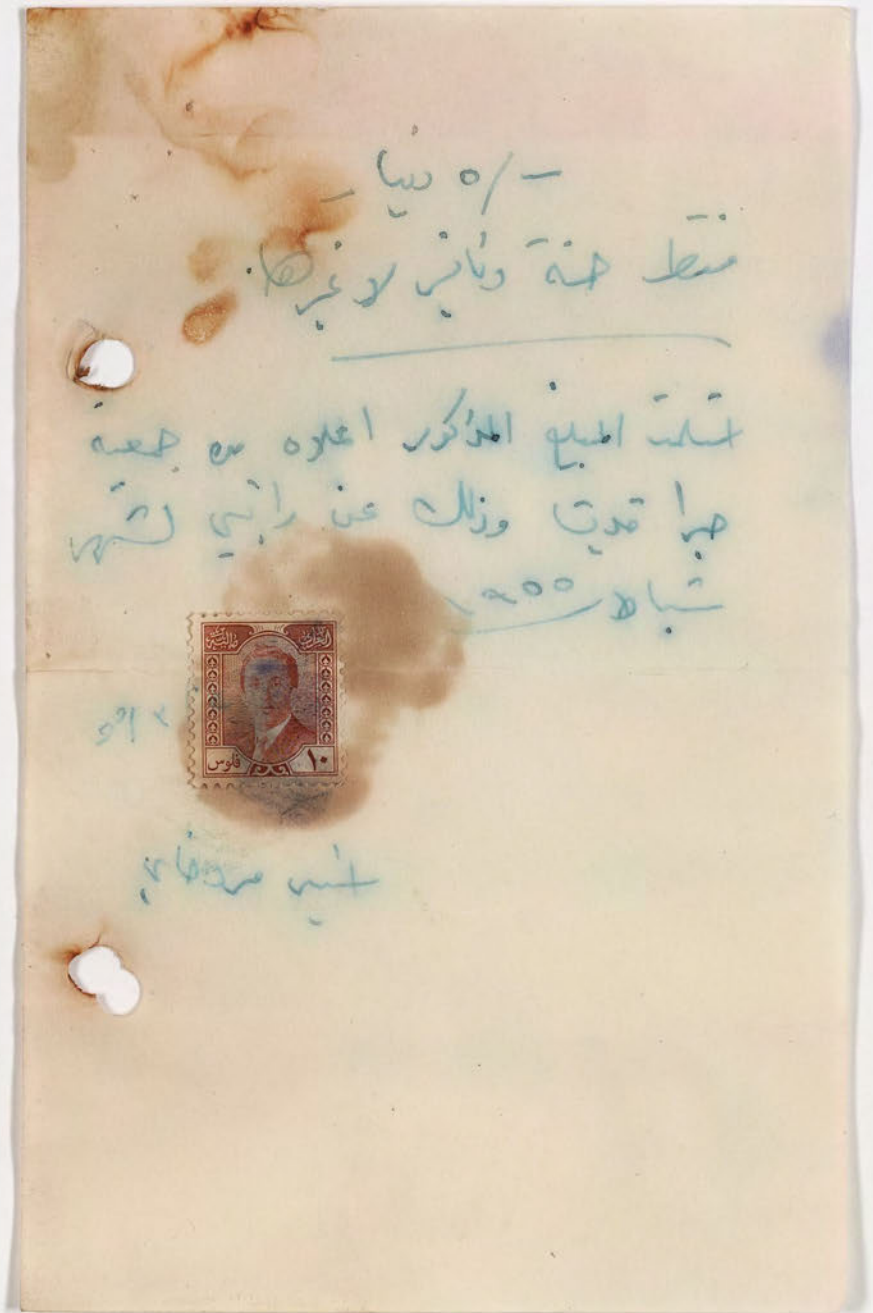 -/٥ دينار
فقط خمسة دنانير لا غيرها.
استلمت المبلغ المذكور اعلاه من جمعية
حبرا قديشا وذلك عن راتبي لشهر
شباط ١٩٥٥
العراق مالية
١٠ فلوس